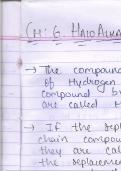 CH: 6 HALOALKA
→ The compound
of Hydrogen
compound b
are called H
→ If the repl
chain compou
they are call
the replacemen